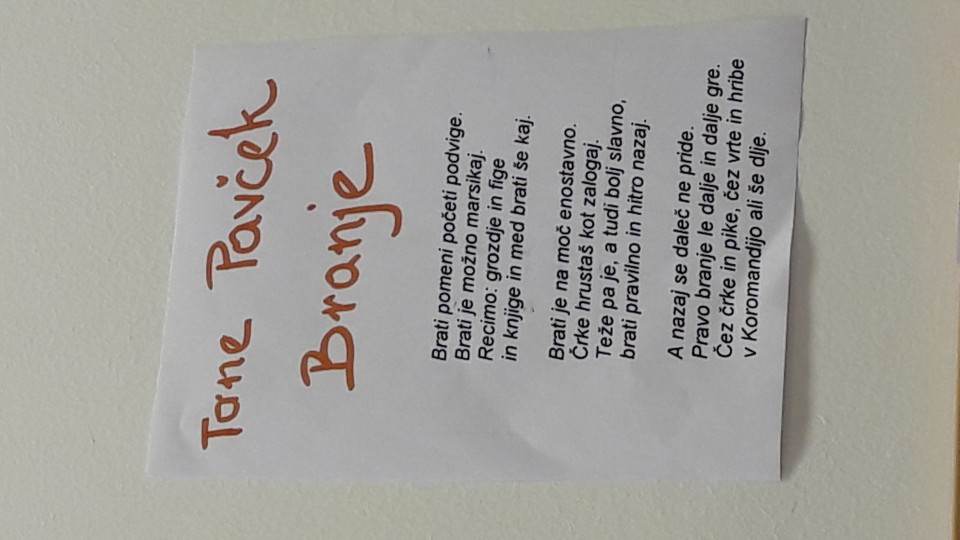 Tone Pavček
Branje
Brati pomeni početi podvige.
Brati je možno marsikaj.
Recimo: grozdje in fige
in knjige in med brati še kaj.
Brati je na moč enostavno.
Črke hrustaš kot zalogaj.
Teže pa je, a tudi bolj slavno,
brati pravilno in hitro nazaj.
A nazaj se daleč ne pride.
Pravo branje le dalje in dalje gre.
Čez črke in pike, čez vrte in hribe
v Koromandijo ali še dlje.